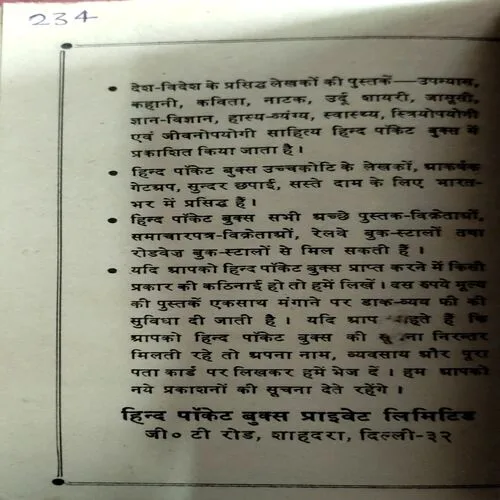 234
• देश-विदेश के प्रसिद्ध लेखकों की पुस्तकें—उपन्यास,
कहानी, कविता, नाटक, उर्दू शायरी, जासूसी,
ज्ञान-विज्ञान, हास्य-व्यंग्य, स्वास्थ्य, स्त्रियोपयोगी
एवं जीवनोपयोगी साहित्य हिन्द पॉकेट बुक्स में
प्रकाशित किया जाता है।
• हिन्द पॉकेट बुक्स उच्चकोटि के लेखकों, आकर्षक
गेटअप, सुन्दर छपाई, सस्ते दाम के लिए भारत-
भर में प्रसिद्ध हैं।
• हिन्द पॉकेट बुक्स सभी अच्छे पुस्तक-विक्रेताओं,
समाचारपत्र-विक्रेताओं, रेलवे बुक-स्टालों तथा
रोडवेज़ बुक-स्टालों से मिल सकती हैं।
• यदि आपको हिन्द पॉकेट बुक्स प्राप्त करने में किसी
प्रकार की कठिनाई हो तो हमें लिखें। दस रुपये मूल्य
की पुस्तकें एकसाथ मंगाने पर डाक-व्यय फ्री की
सुविधा दी जाती है। यदि आप हते हैं कि
आपको हिन्द पॉकेट बुक्स की सू ना निरन्तर
मिलती रहे तो अपना नाम, व्यवसाय और पूरा
पता कार्ड पर लिखकर हमें भेज दें। हम आपको
नये प्रकाशनों की सूचना देते रहेंगे।
हिन्द पॉकेट बुक्स प्राइवेट लिमिटेड
जी० टी रोड, शाहदरा, दिल्ली-३२